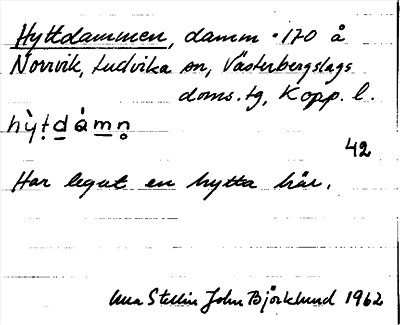 Hyttdammen, damm · 170 å
Norrvik, Ludvika sn, Västerbergslags
doms.tg, Kopp. l.
hỳṭdámn̥
42
Har legat en hytta här.
Stellin John Björklund 1962